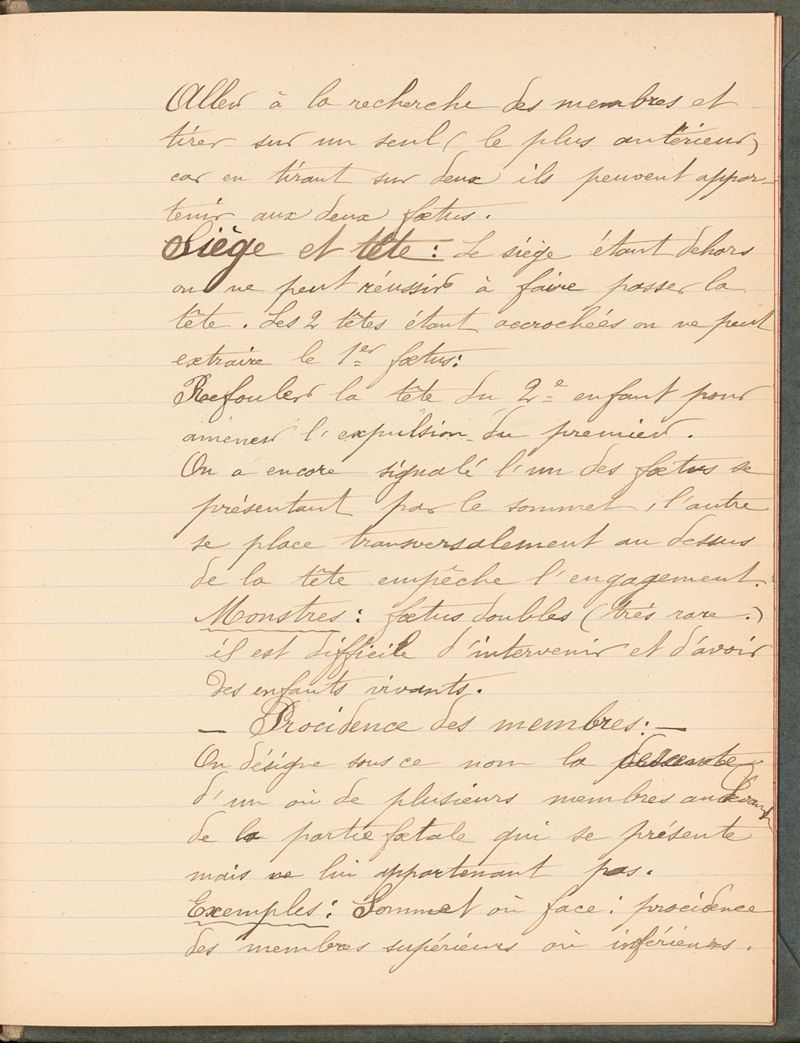 Aller à la recherche des membres et
tirer sur un seul (le plus antérieur)
car en tirant sur deux ils peuvent appar-
tenir aux deux fœtus.
Siège et tête : Le siège étant dehors
on ne peut réussir à faire passer la
tête. Les 2 têtes étant accrochées on ne peut
extraire le 1er fœtus :
Refouler la tête du 2e enfant pour
amener l'expulsion du premier.
On a encore signalé l'un des fœtus se
présentant par le sommet, l'autre
se place transversalement au dessus
de la tête empêche l'engagement.
Monstres : fœtus doubles (très rare.)
il est difficile d'intervenir et d'avoir
des enfants vivants.
— Procidence des membres : —
On désigne sous ce nom la descente
d'un où de plusieurs membres au devant
de la partie fœtale qui se présente
mais ne lui appartenant pas.
Exemples : Sommet où face : procidence
des membres supérieurs où inférieurs.